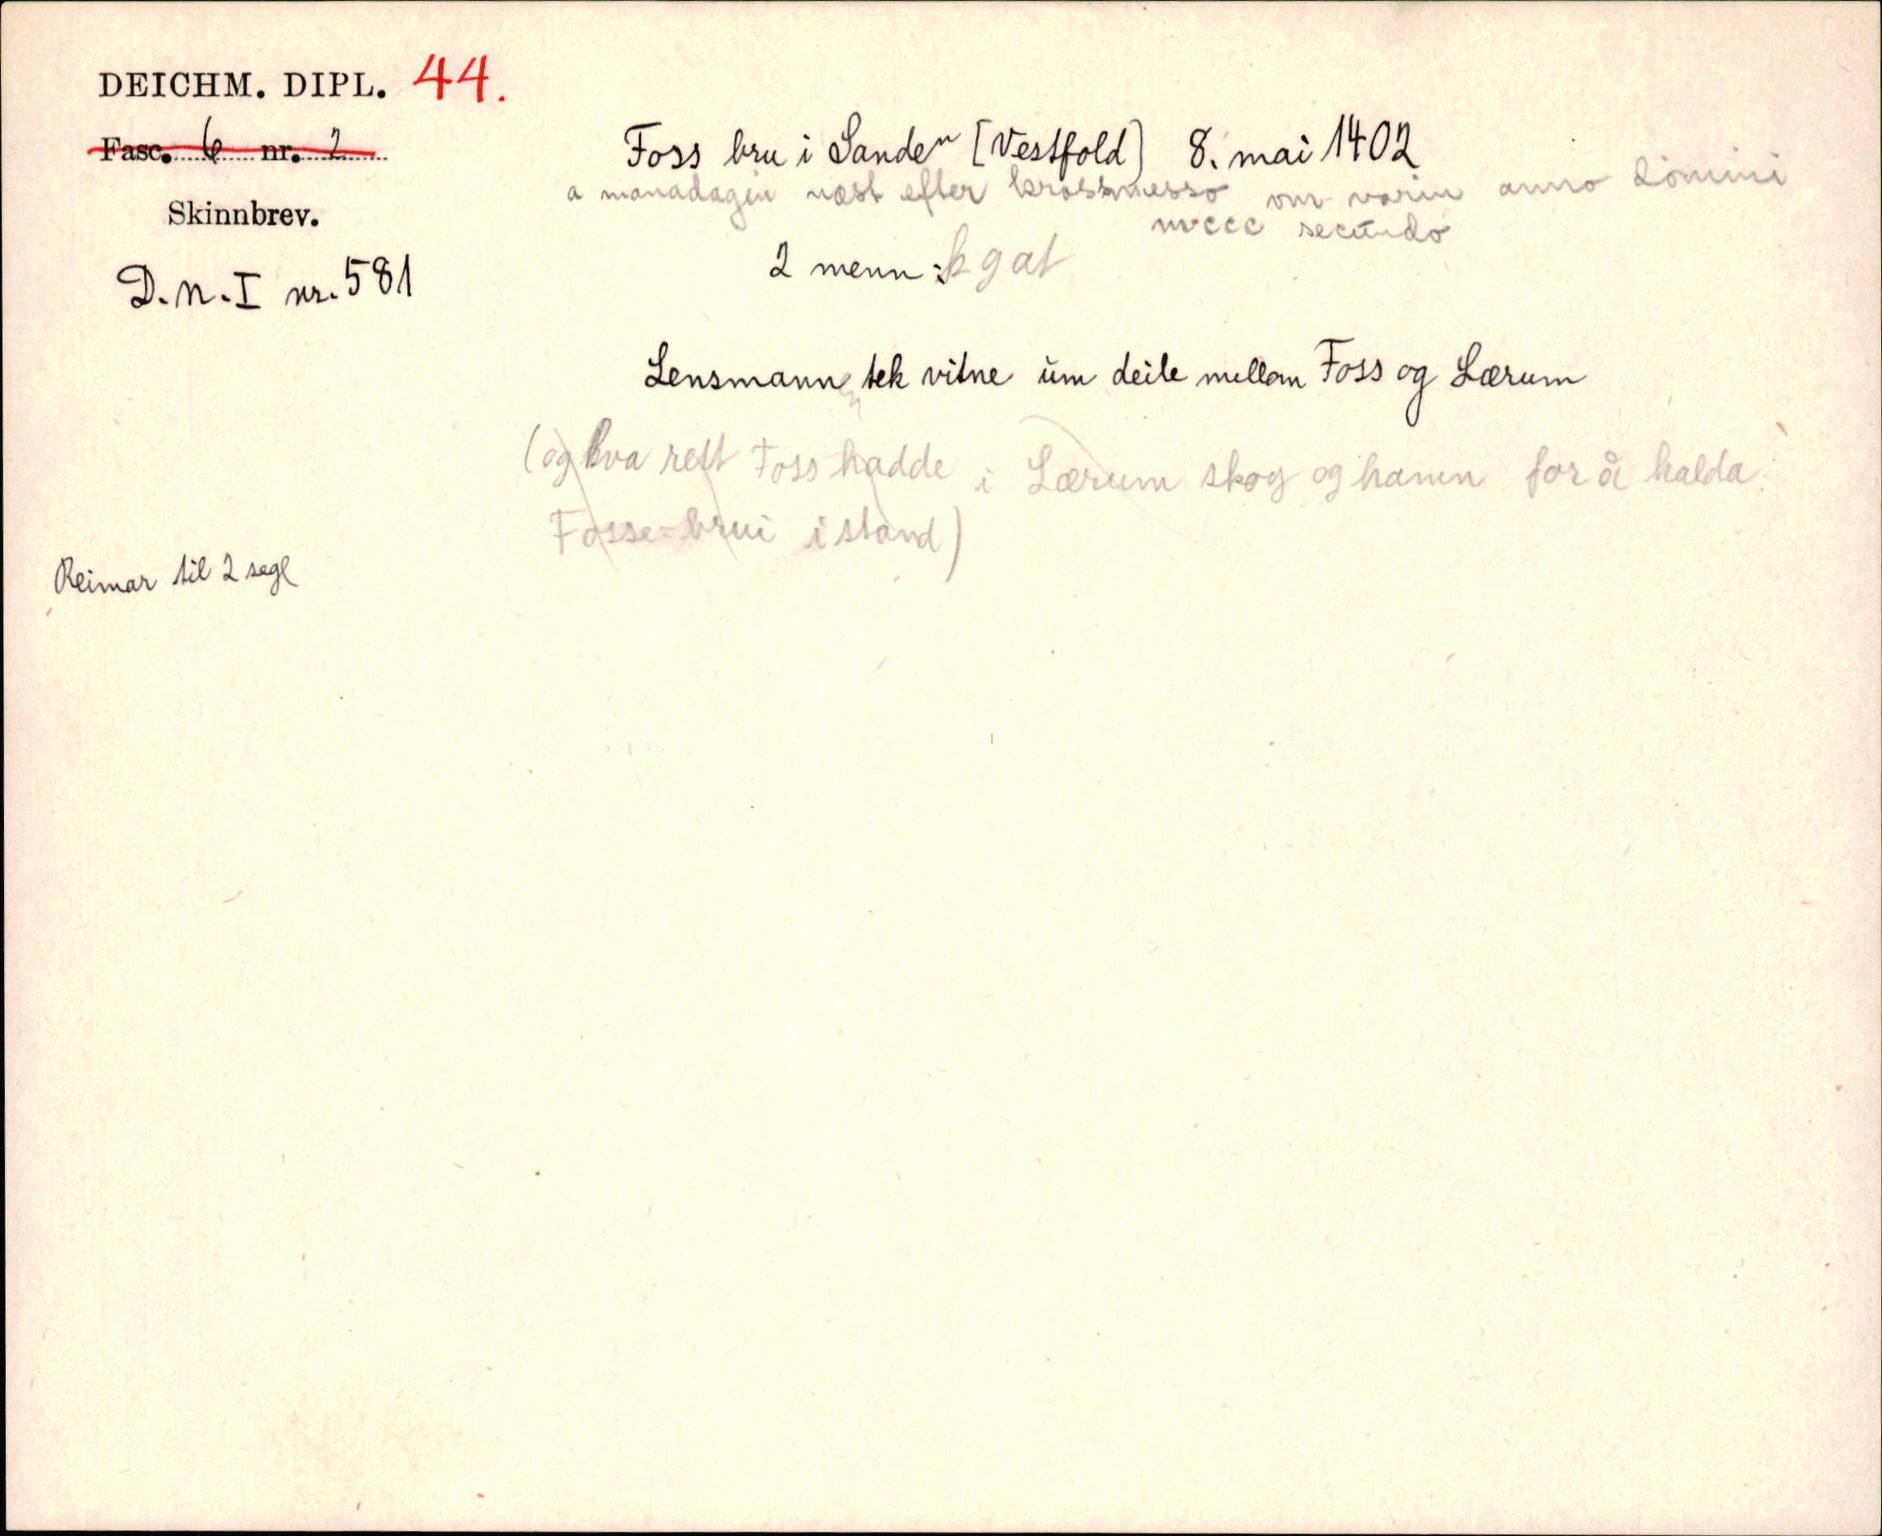 DEICHM. DIPL. 44.
Fasc. 6 nr. 2
Skinnbrev.
D.n.I nr. 581
Foss bru i Sande [Vestfold] 8. mai 1402
a manadagin næst efter krossmesso om varin anno domini
mcccc secundo
2 menn: k g at
Lensmannen tek vitne um deile mellom Foss og Lærum
(og kva rett Foss hadde i Lærum skog og hamn for å halda
Fosse-brui i stand)
Reimar til 2 segl